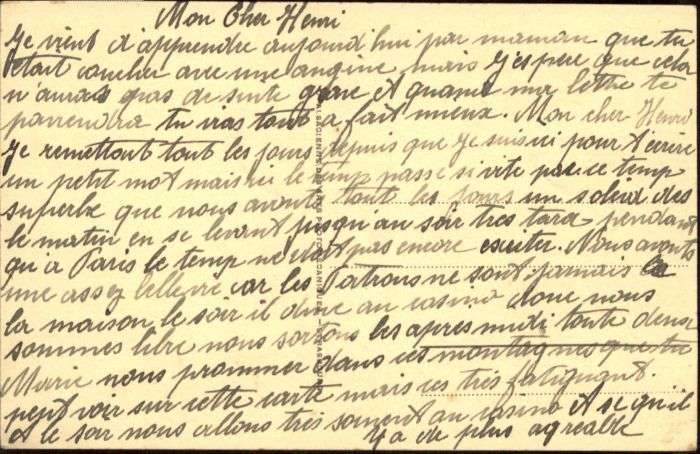 Mon Cher Henri
Je vient d'apprendre aujourd'hui par maman que tu
était coucher avec une angine mais j'espere que cela
n'aurais pas de suite grave et quand ma lettre te
parviendra tu vas tout a fait mieux. Mon cher Henri
Je remettait tout les jours depuis que je suis ici pour t'écrire
un petit mot mais ici le temp passe si vite par ce temp
superbe que nous avont tout les jours un soleil des
le matin en se levant jusqu'au soir tres tard pendant
qu'a Paris le temp ne doit pas encore exister. Nous avonts
une assez belle vie car les Patrons ne sont jamais
la maison le soir il dine au casino donc nous
sommes libre nous sortons les apres midi toute deux
Marie nous prommener dans ces montagnes que tu
peut voir sur cette carte mais ces très fatiguant.
et le soir nous allons très souvent au casino et se qu'il
y a de plus agreable